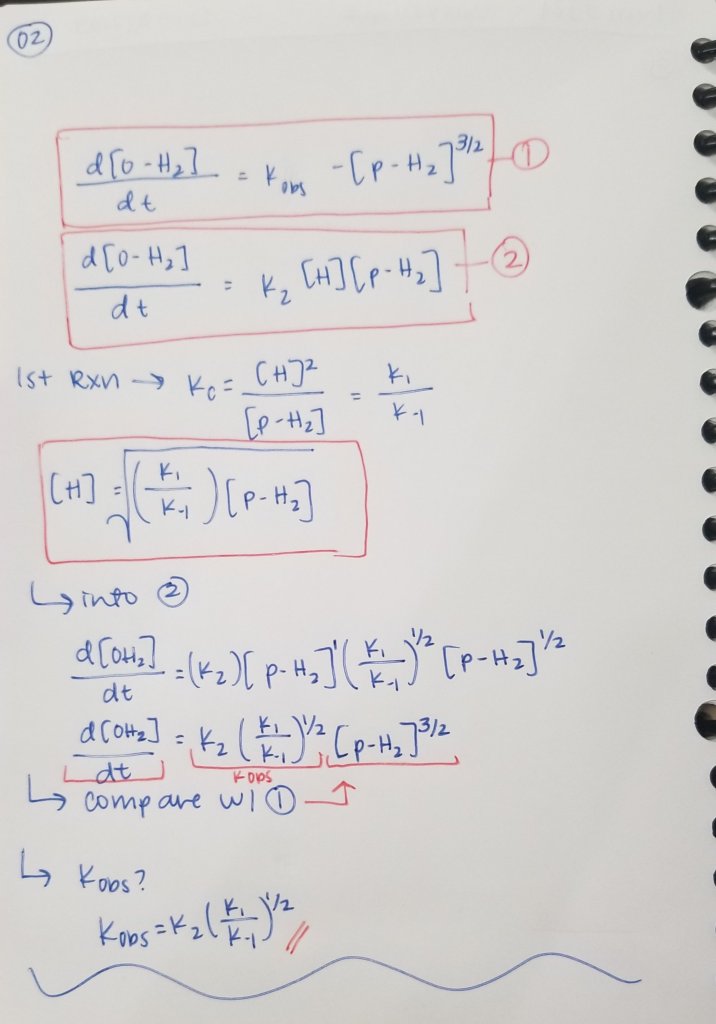 02
d[O-H₂]/dt = K_obs -[P-H₂]^3/2 — ①
d[O-H₂]/dt = K₂ [H][P-H₂] — ②
1st Rxn → K_C = [H]²/[P-H₂] = K₁/K₋₁
[H] = √(K₁/K₋₁)[P-H₂]
↳ into ②
d[OH₂]/dt = (K₂)[P-H₂]¹(K₁/K₋₁)^1/2 [P-H₂]^1/2
d[OH₂]/dt = K₂(K₁/K₋₁)^1/2 [P-H₂]^3/2
K obs
↳ compare w/ ①
↳ K_obs?
K_obs = K₂(K₁/K₋₁)^1/2 //